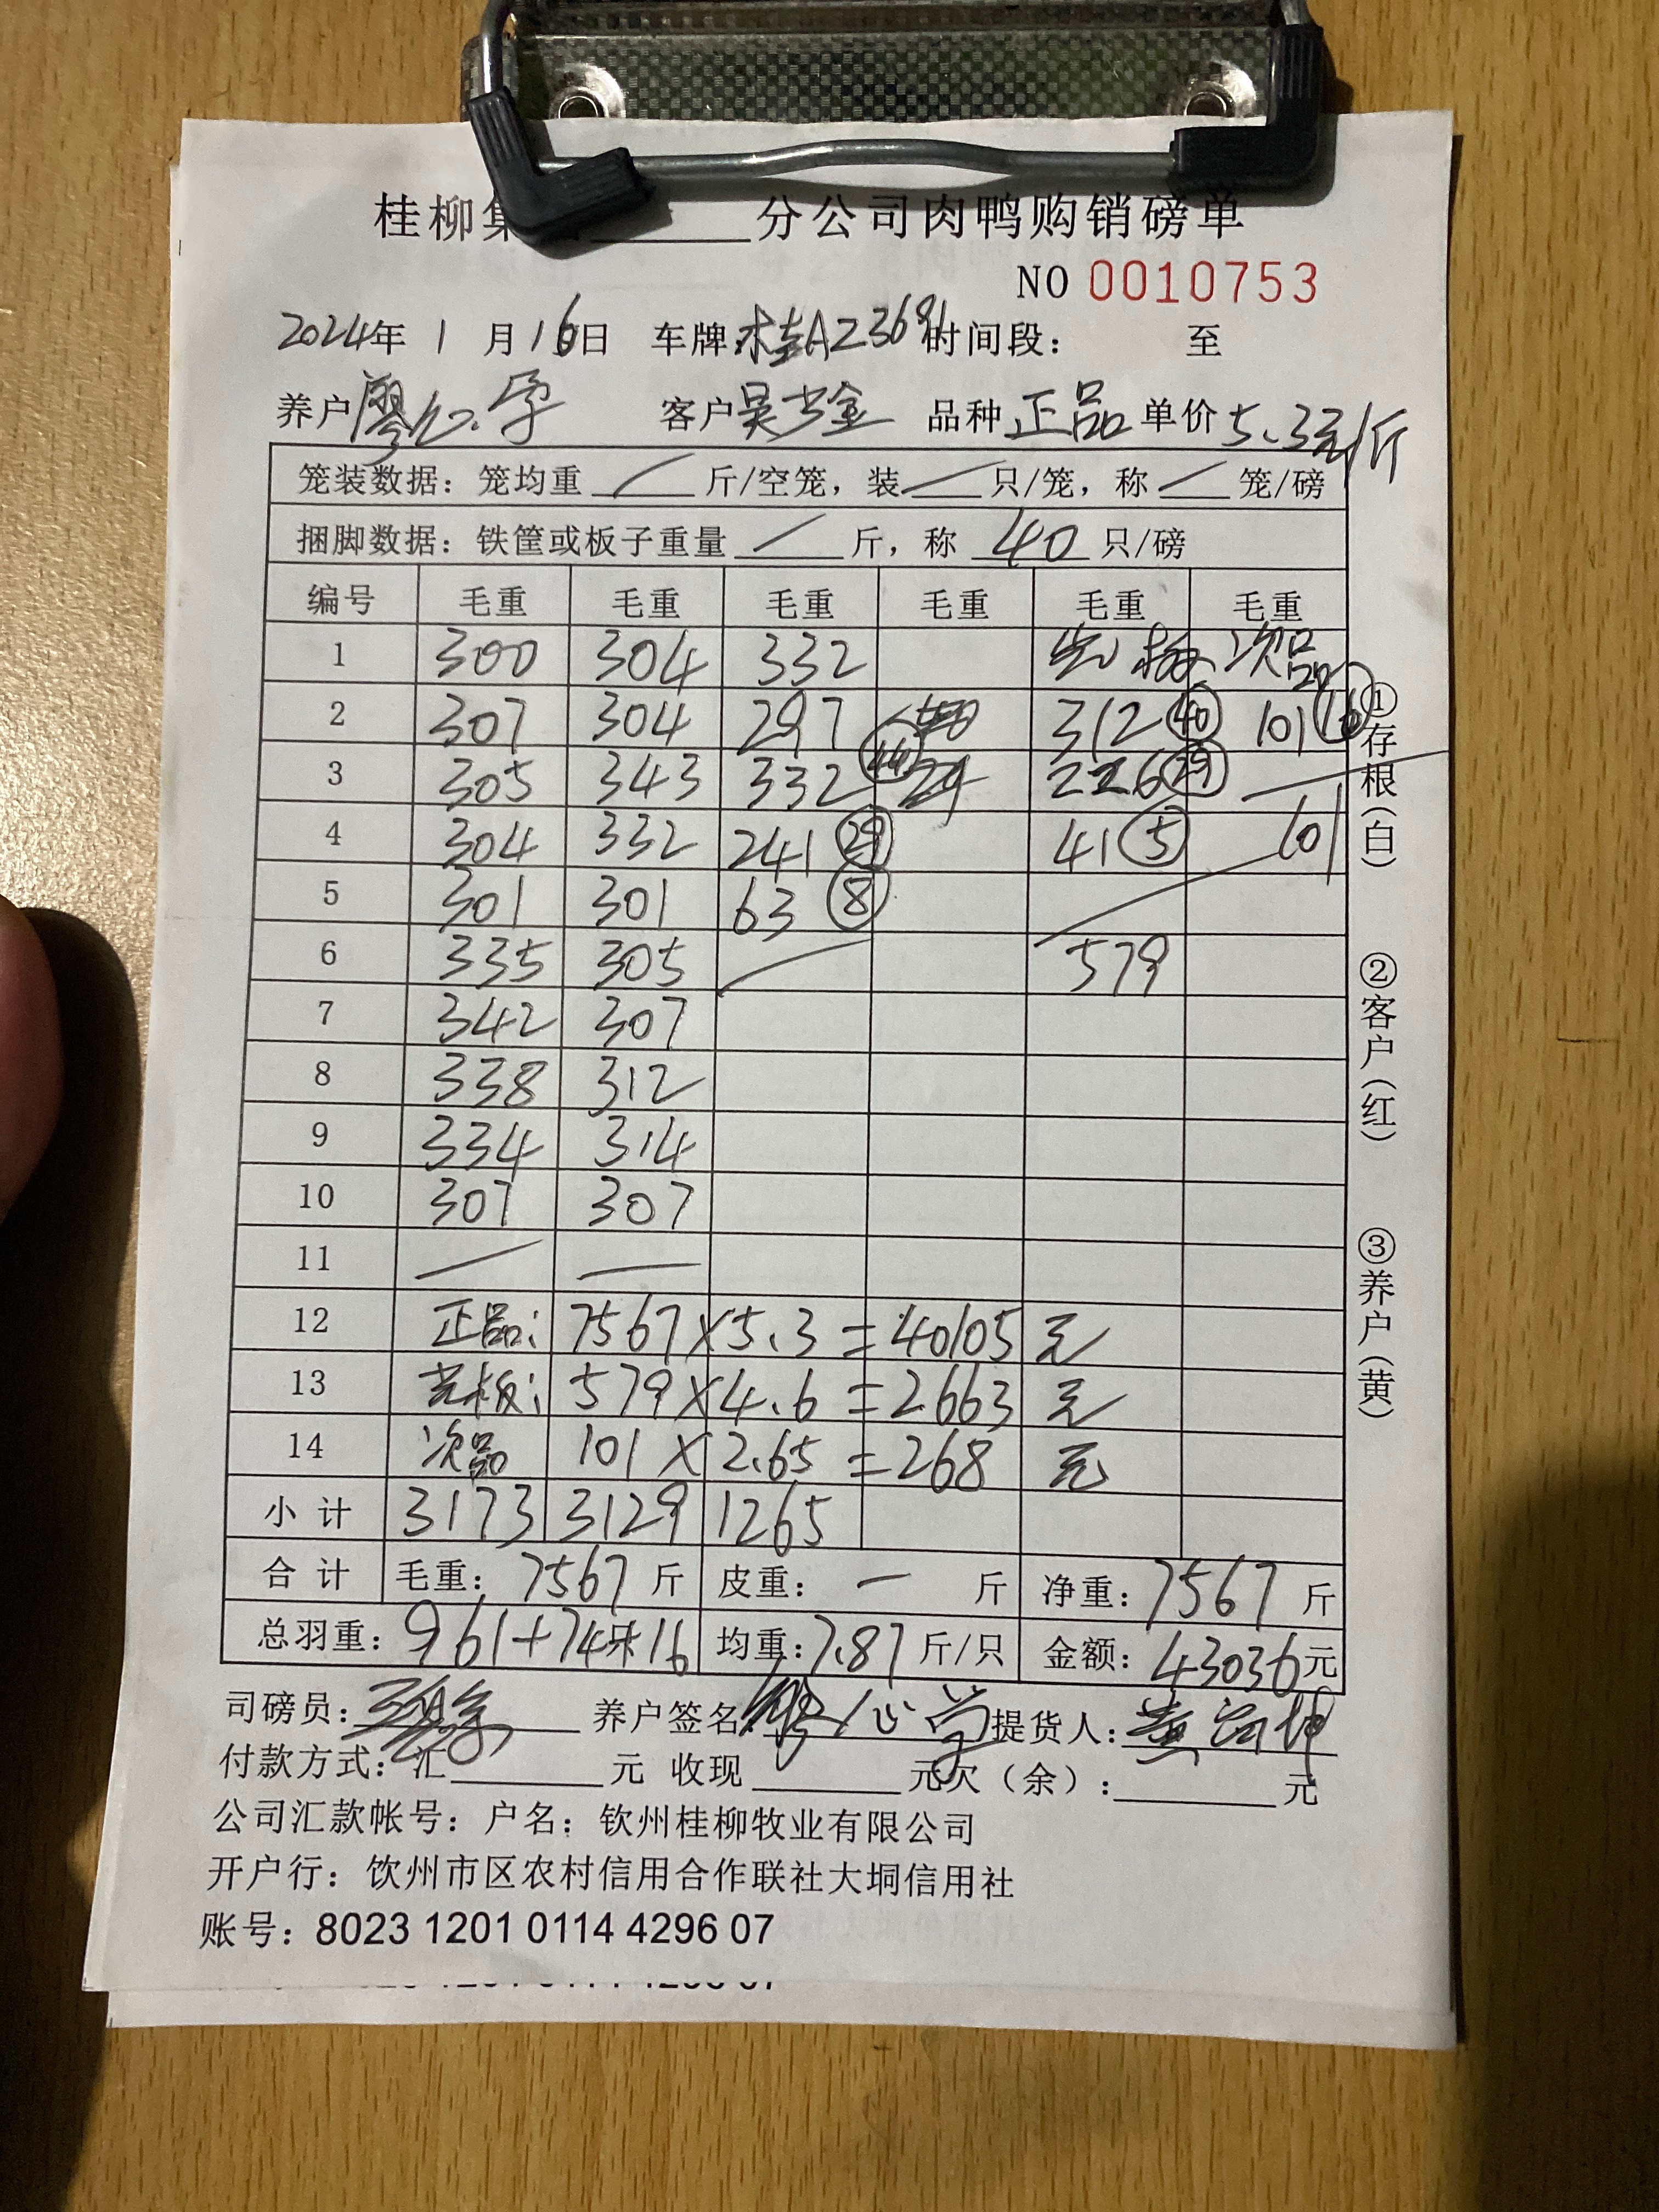 桂柳集 分公司肉鸭购销磅单
NO 0010753
2024年 1 月 16日 车牌:桂AZ3691 时间段: 至
养户 廖 客户 吴少金 品种 正品 单价 5.3元/斤
笼装数据：笼均重 / 斤/空笼，装 / 只/笼，称 / 笼/磅
捆脚数据：铁筐或板子重量 / 斤，称 40 只/磅
编号 毛重 毛重 毛重 毛重 毛重 毛重
1 300 304 332 光板 次品
2 307 304 297 312 40 101 16
3 305 343 332 44 226 29
4 304 332 241 29 41 5 101
5 301 301 63 8
6 335 305 579
7 342 307
8 338 312
9 334 314
10 307 307
11
12 正品: 7567×5.3=40105 元
13 光板: 579×4.6=2663 元
14 次品 101×2.65=268 元
小 计 3173 3129 1265
合 计 毛重：7567 斤 皮重：一 斤 净重：7567 斤
总羽重：961+74+16 均重:7.87 斤/只 金额：43036元
司磅员: 养户签名: 提货人:
付款方式：汇 元 收现 元欠（余）: 元
公司汇款帐号：户名：钦州桂柳牧业有限公司
开户行：饮州市区农村信用合作联社大垌信用社
账号：8023 1201 0114 4296 07
①存根(白)
②客户(红)
③养户(黄)